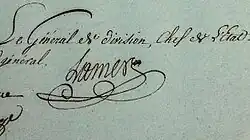 Le Général de division, Chef de l'Etat
général.